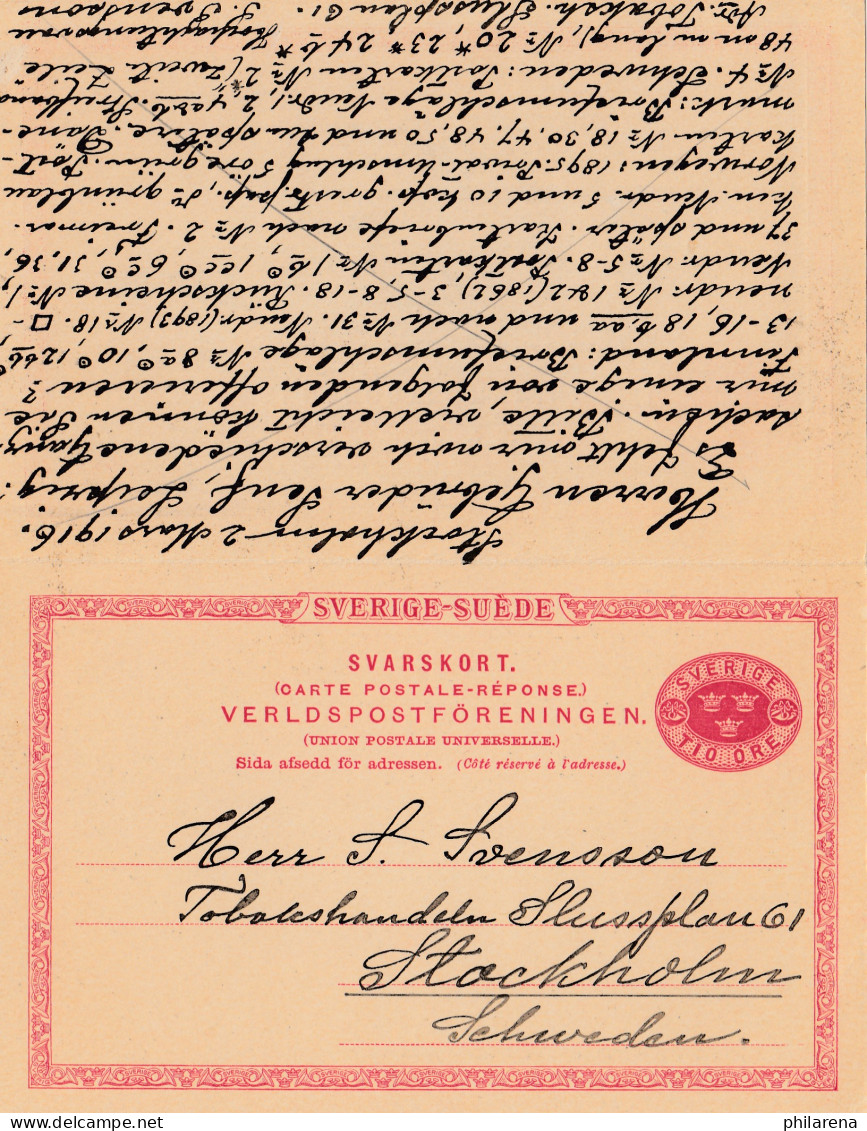 Stockholm 2 Mars 1916.
Herren Gebrüder Senf, Leipzig!
Es fehlt mir noch verschiedene Ganz-
sachen. Bitte, vielleicht können Sie
mir einige von folgenden offerieren?
Finnland: Briefumschläge Nº 8a°, 10°, 12bb°,
13-16, 18 b, aa und nach Nº 31. Neudr. (1893) Nº 18.
neudr. Nº 1 & 2 (1862) 3-5, 8-18. Rückscheine Nº 1,
Neudr. Nº 5-8. Postkarten Nº 1 b°, 1cc°, 6c°, 31, 36,
37 und später. Kartenbriefe nach Nº 2. Freimar-
ken Neudr. 5 und 10 kop.
Norwegen: 1895. Privat-Umschlag 5 öre grün. Post-
karten Nº 18, 30, 47, 48, 50 und spätere. Däne-
mark: Briefumschläge Neudr. 1, 2, 4 Streifband
Nº 4. Schweden: Postkarten Nº 2 (zweite Zeile
48 mm lang), Nº 20*, 23* 24 b*
Hochachtungsvoll
Adr. Tobaksh. Slussplan 61. S. Svensson
SVERIGE-SUÈDE
SVARSKORT.
(CARTE POSTALE-RÉPONSE.)
VERLDSPOSTFÖRENINGEN.
(UNION POSTALE UNIVERSELLE.)
Sida afsedd för adressen. (Côté réservé à l'adresse.)
SVERIGE
TIO ÖRE
Herr S. Svensson
Tobakshandeln Slussplan 61
Stockholm
Schweden.
philarena